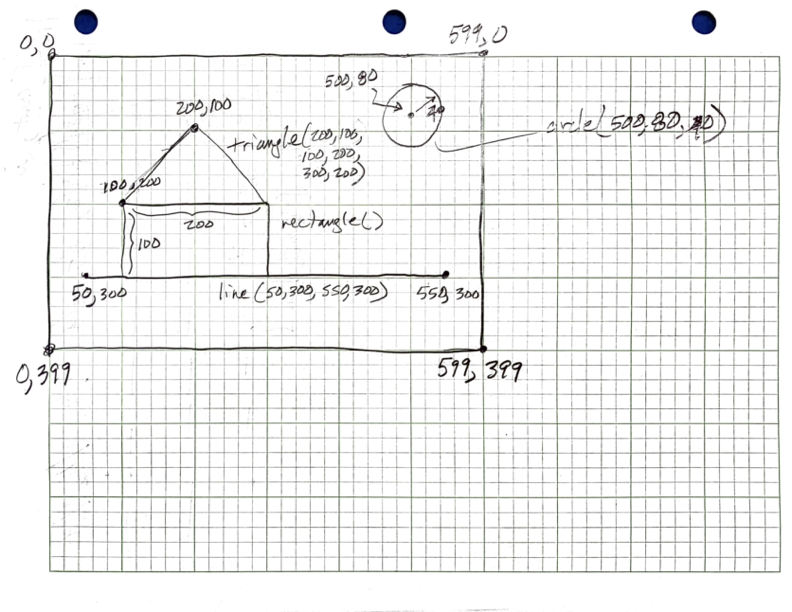 0,0
599,0
500,80
40
circle(500,80,40)
200,100
triangle(200,100,
100,200,
300,200)
100,200
200
rectangle()
100
50,300
line(50,300,550,300)
550,300
0,399
599,399